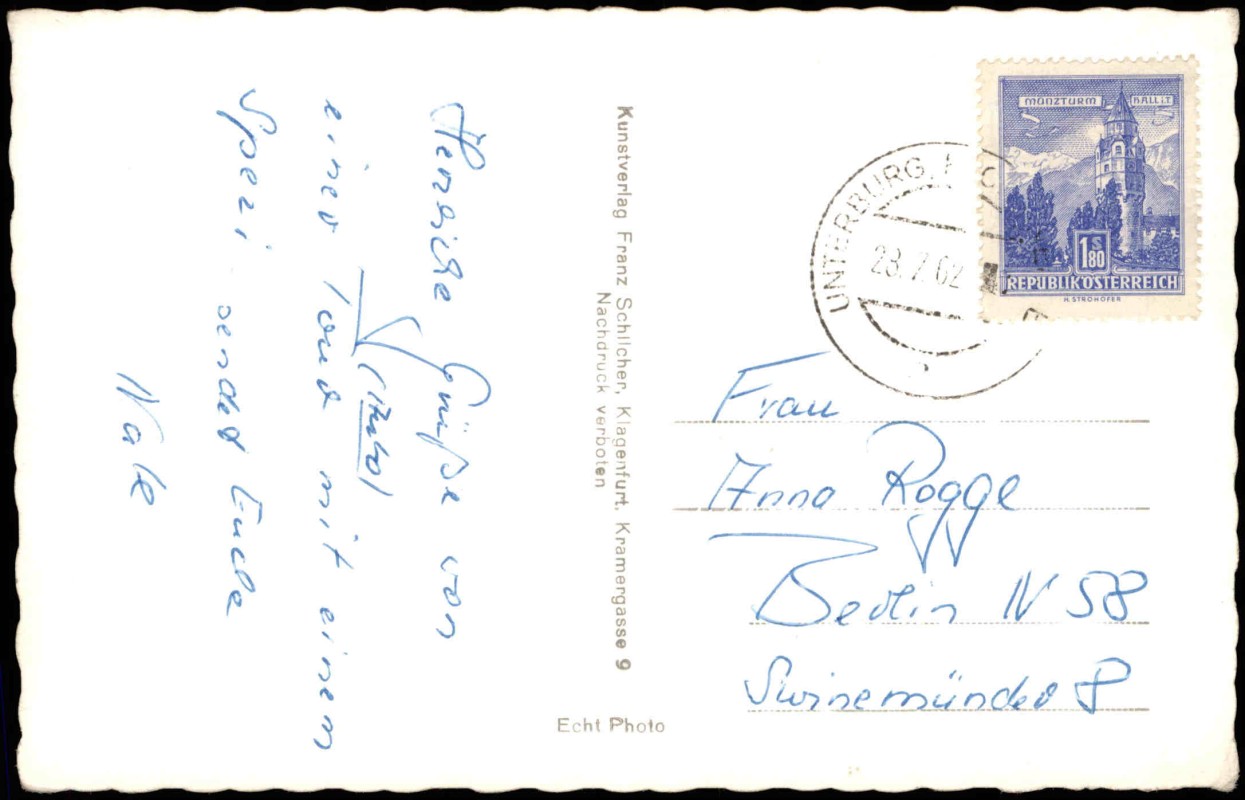 Herzliche Grüße von
einer Tour mit einem
(Puch)
Spezi sendet Euch
Kunstverlag Franz Schilcher, Klagenfurt, Kramergasse 9
Nachdruck verboten
Echt Photo
MÜNZTURM HALL i.T.
1 S 80
REPUBLIK ÖSTERREICH
H. STROHOFER
UNTERBURG
23.7.62
Frau
Anna Rogge
Berlin N 58
Swinemünder 8